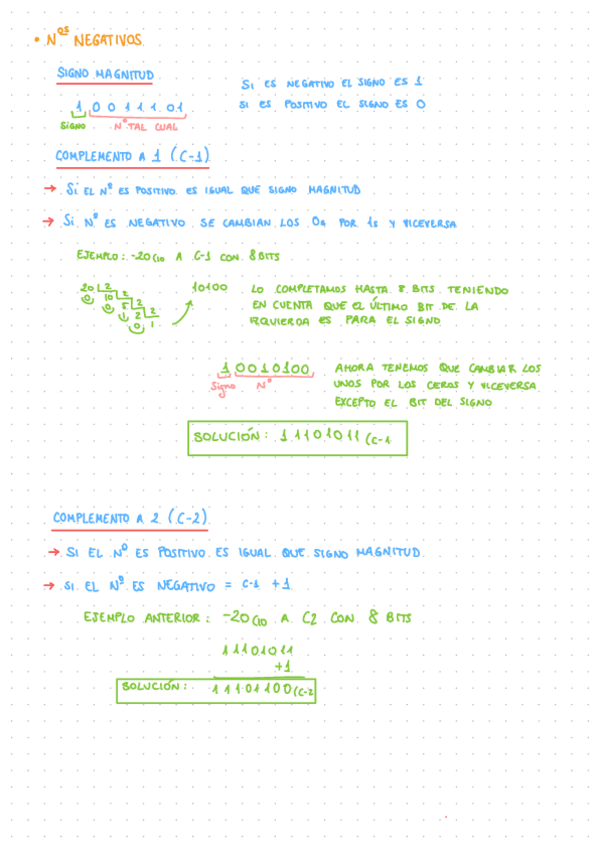 • Nºˢ NEGATIVOS
SIGNO MAGNITUD
SI ES NEGATIVO EL SIGNO ES 1
1 0 0 1 1 1 0 1
SI ES POSITIVO EL SIGNO ES 0
SIGNO Nº TAL CUAL
COMPLEMENTO A 1 (C-1)
→ SI EL Nº ES POSITIVO ES IGUAL QUE SIGNO MAGNITUD
→ SI Nº ES NEGATIVO SE CAMBIAN LOS 0s POR 1s Y VICEVERSA
EJEMPLO: -20(10 A C-1 CON 8 BITS
20 2
0 10 2
0 5 2
1 2 2
0 1
10100
LO COMPLETAMOS HASTA 8 BITS TENIENDO
EN CUENTA QUE EL ÚLTIMO BIT DE LA
IZQUIERDA ES PARA EL SIGNO
1 0010100
Signo Nº
AHORA TENEMOS QUE CAMBIAR LOS
UNOS POR LOS CEROS Y VICEVERSA
EXCEPTO EL BIT DEL SIGNO
SOLUCIÓN: 1 1101011 (C-1
COMPLEMENTO A 2 (C-2)
→ SI EL Nº ES POSITIVO ES IGUAL QUE SIGNO MAGNITUD.
→ SI EL Nº ES NEGATIVO = C-1 +1
EJEMPLO ANTERIOR: -20(10 A C2 CON 8 BITS
11101011
+1
SOLUCIÓN: 11101100(C-2